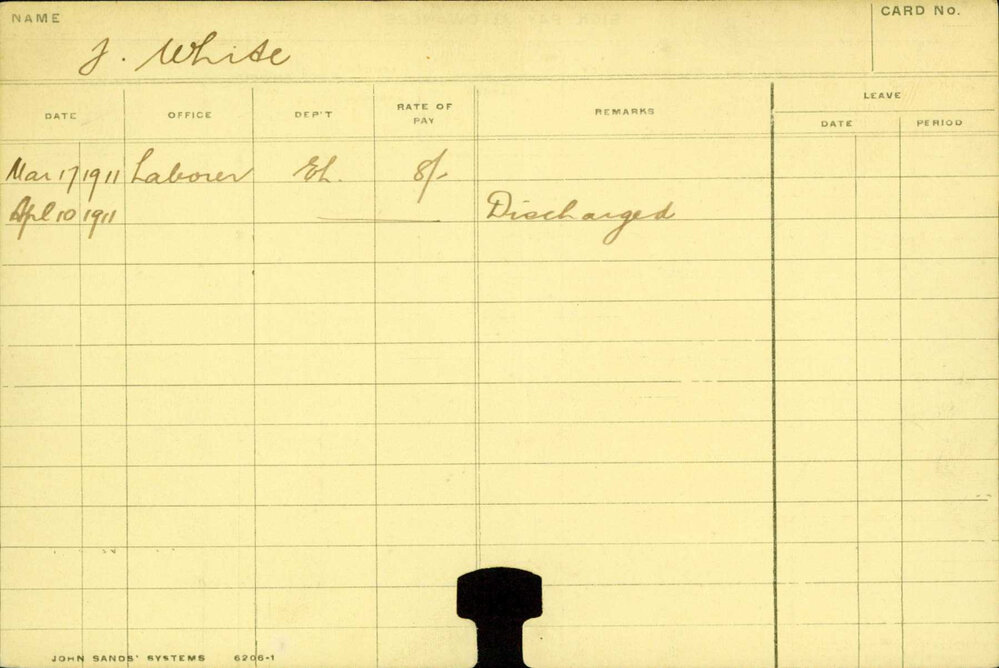 NAME
CARD No.
J. White
DATE OFFICE DEP'T RATE OF PAY REMARKS LEAVE
DATE PERIOD
Mar 17 1911 Laborer EL. 8/-
Apl 10 1911 Discharged
JOHN SANDS' SYSTEMS 6206-1